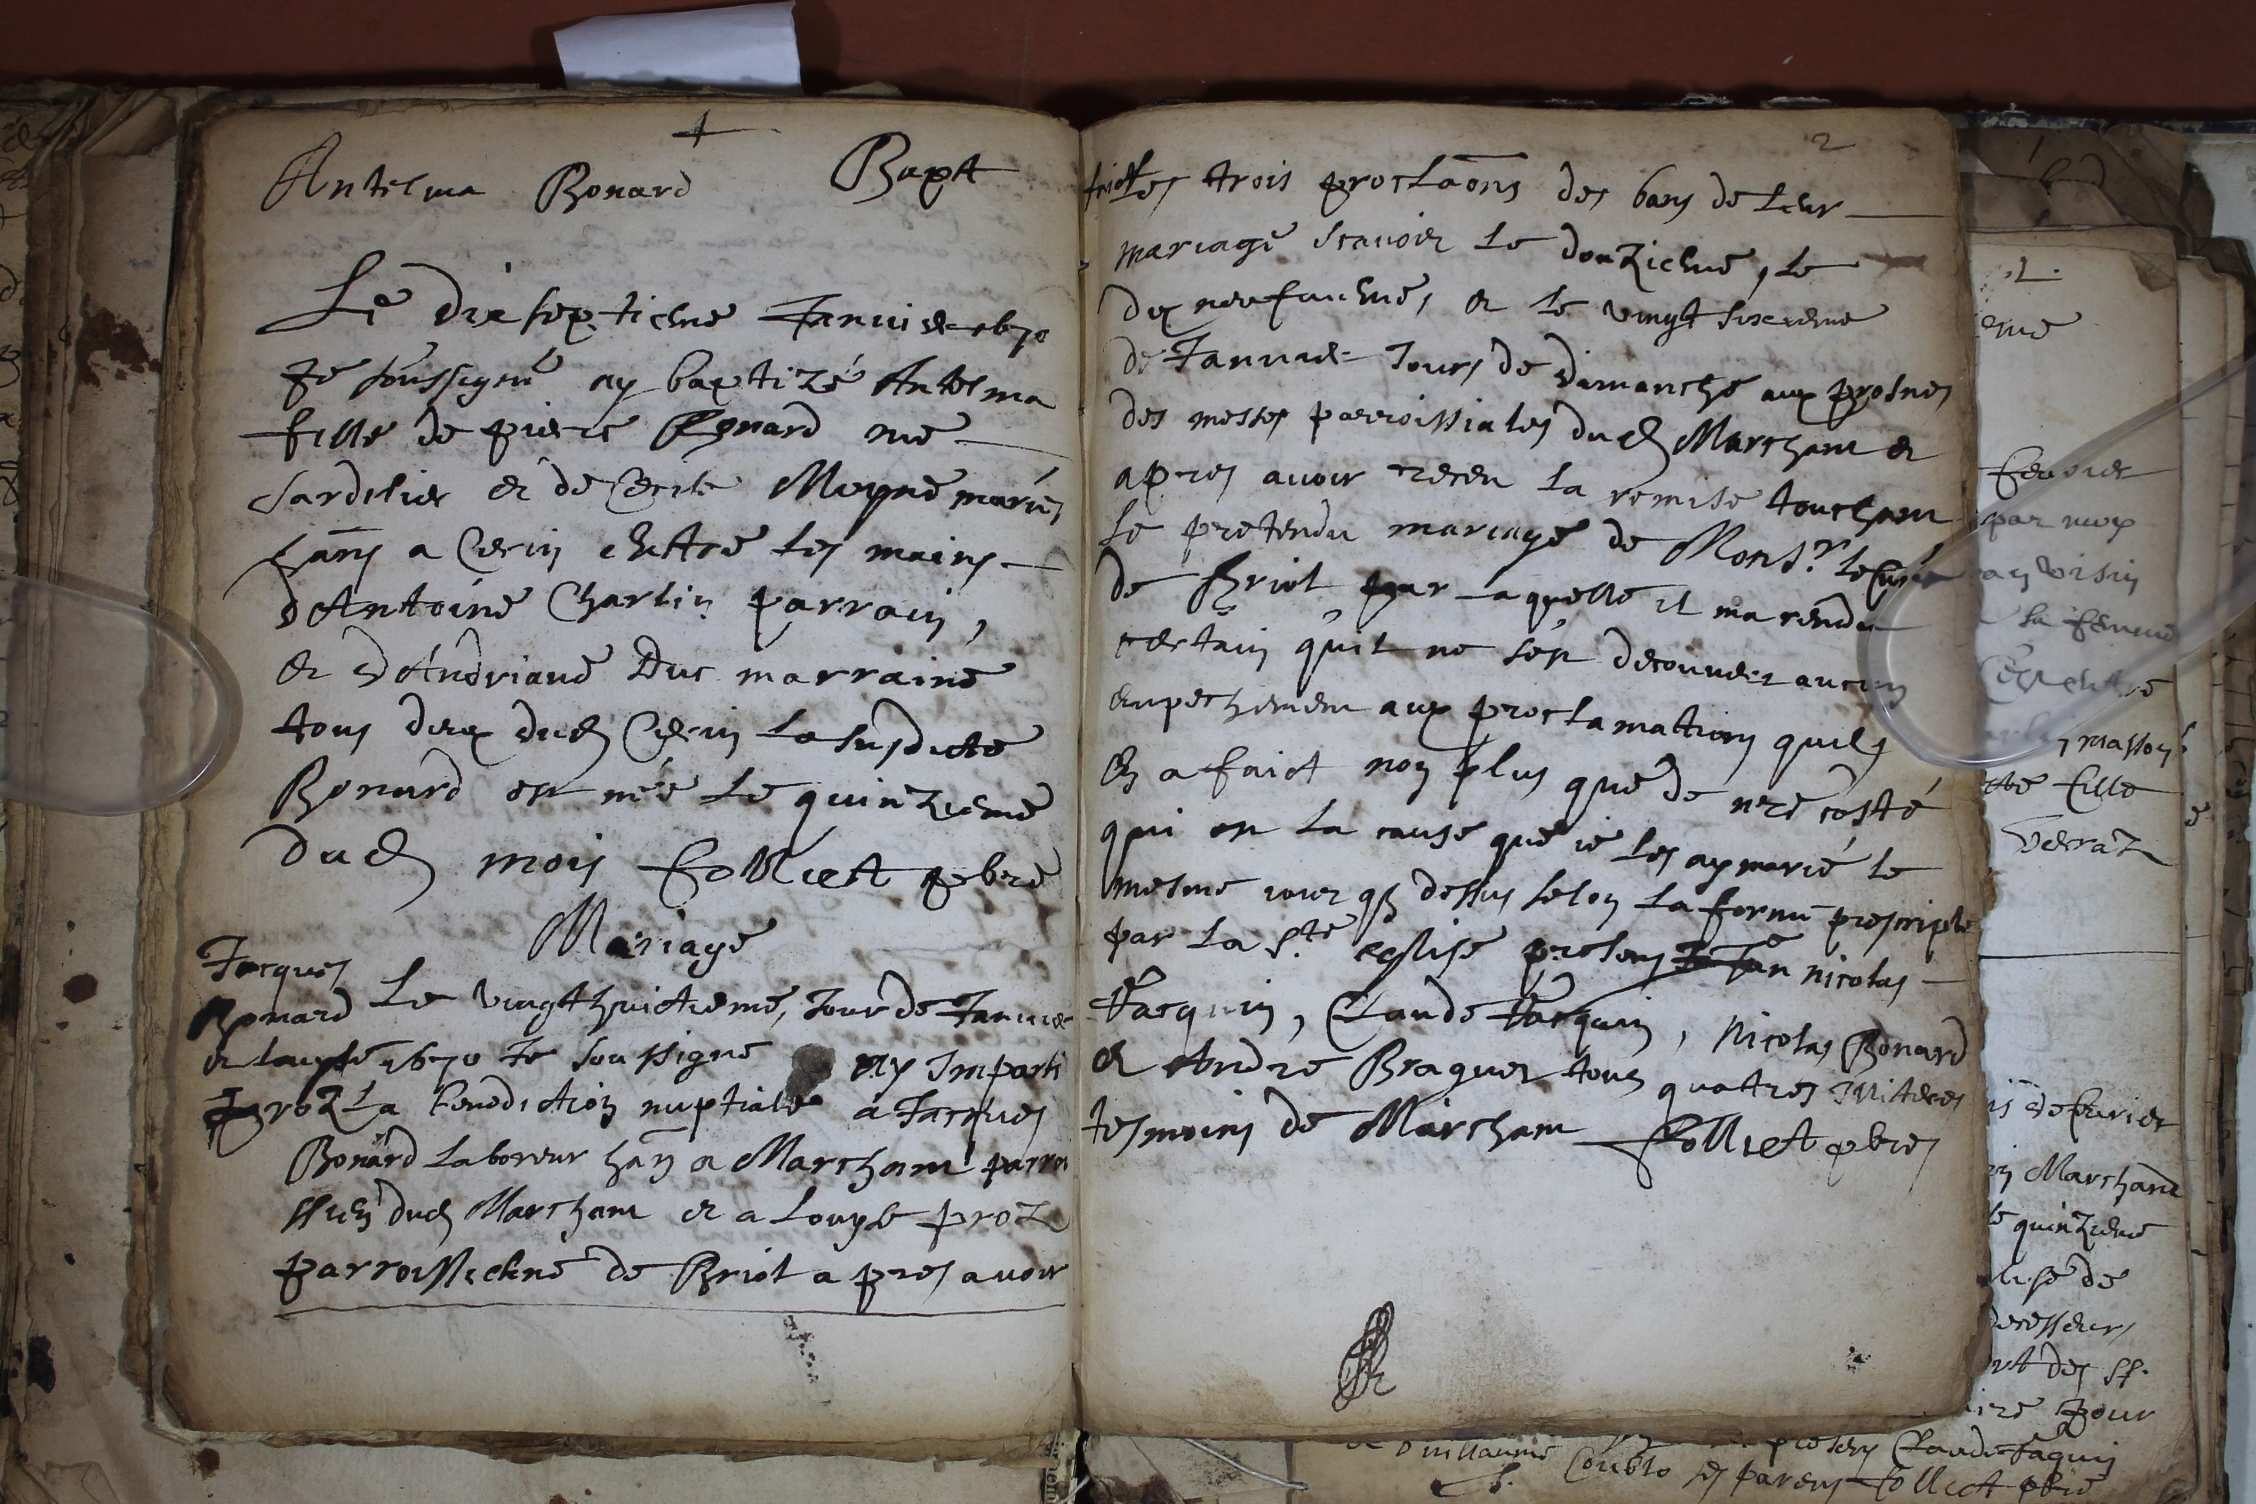 Antelma Bonard Bapt
Le dixseptieme Januier 1670
Je soussigné ay baptizé Antelma
fille de pierre Bonard me
Cardelier et de Cecile Moyne mariés
hans a Cerin entre les mains
d'Antoine Charlin parrain,
et d'Andriane Duc marraine
tous deux dud Cerin la susdicte
Bonard est née le quinzieme
dud mois Colliet pbre
Mariage
Jacques
Bonard
et Louyse
proz
Le vingthuictieme, Jour de Januier
1670 Je soussigné ay Imparti
La benediction nuptiale a Jacques
Bonard laboreur han a Marchant parroi
ssien dud Marchant et a Louyse proz
parroissienne de Briot apres auoir
2
faict les trois proclaons des bans de leur
mariage scauoir le douzieme, le
dix neufuieme, et le vingt sixieme
de Januier Jours de dimanche aux prosnes
des messes parroissiales dud Marchant et
apres auoir receu la remise touchant
le pretendu mariage de Monsr. le curé
de Briot par laquelle il ma rendu
certain quil ne s'est decouuert aucun
empechement aux proclamations quil
en a faict non plus que de nre costé
qui est la cause que ie les ay marié le
mesme iour q dessus selon la forme prescripte
par la Ste eglise presens Jean nicolas
Jacquin, Claude Jacquin, Nicolas Bonard
et André Braguet tous quatres
tesmoins de Marchant Colliet pbre
feurier
par moy
la femme
masson
fille
Verraz
de feurier
Marchant
le quinzieme
de
des SS.
pour
Guillaume presens Claude Jaquin
parens Colliet pbre